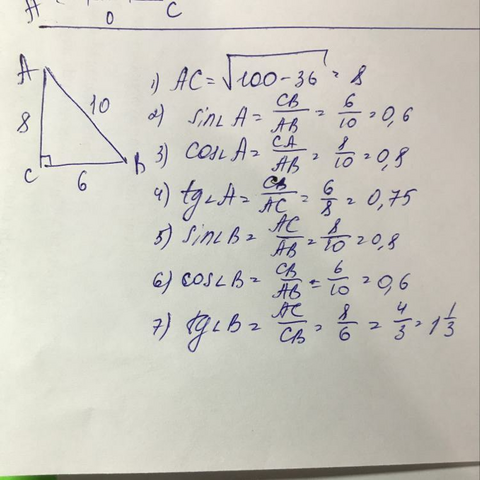 A
O
C
A
8
10
C
6
B
1) AC = √100-36 = 8
2) sin∠A = CB/AB = 6/10 = 0,6
3) cos∠A = CA/AB = 8/10 = 0,8
4) tg∠A = CB/AC = 6/8 = 0,75
5) sin∠B = AC/AB = 8/10 = 0,8
6) cos∠B = CB/AB = 6/10 = 0,6
7) tg∠B = AC/CB = 8/6 = 4/3 = 1 1/3